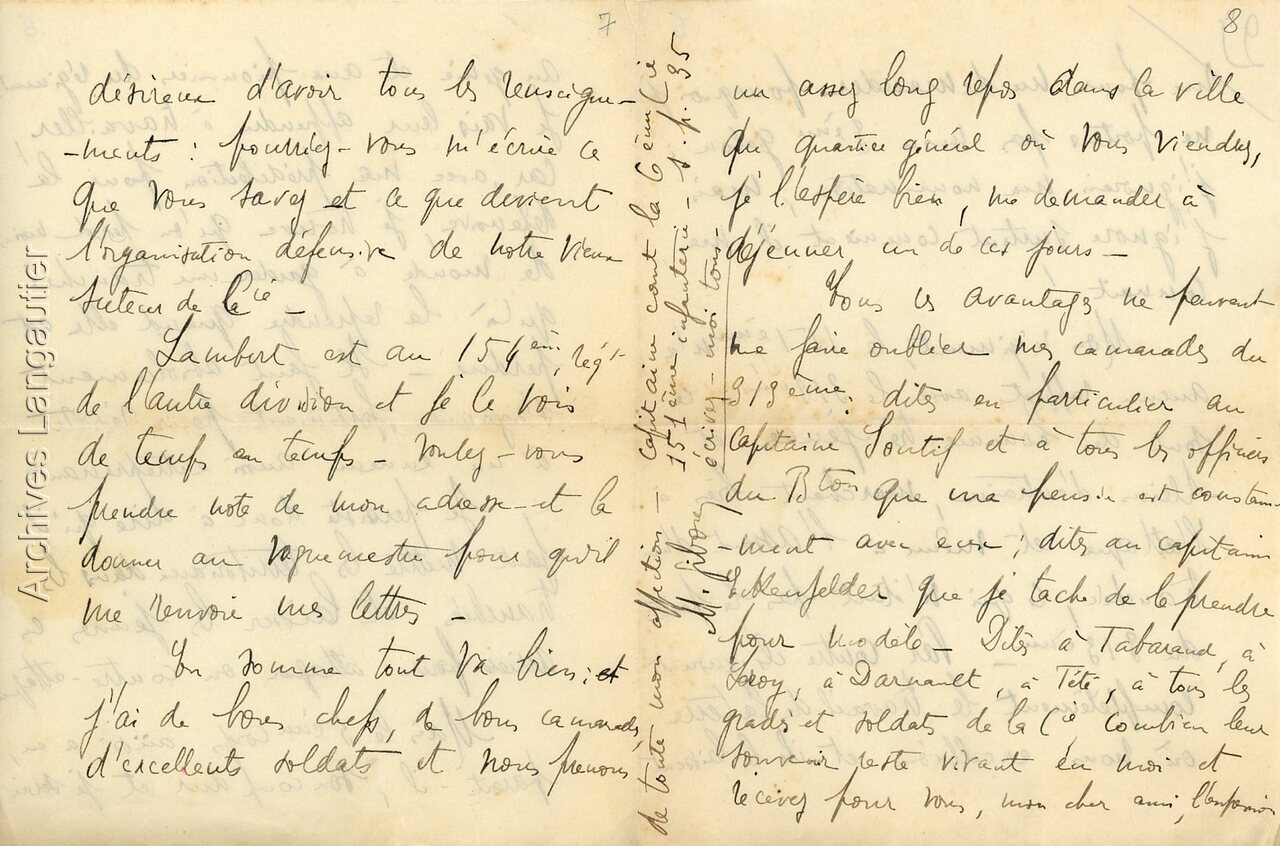 7
désireux d'avoir tous les renseigne-
-ments : pourriez-vous m'écrire ce
que vous savez et ce que devient
l'organisation défensive de notre vieux
secteur de Cie –
Lambert est au 154ème régt
de l'autre division et je le vois
de temps en temps – voulez-vous
prendre note de mon adresse et la
donner au vaguemestre pour qu'il
me renvoie mes lettres –
En somme tout va bien ; et
j'ai de bons chefs, de bons camarades,
d'excellents soldats et nous prenons
8
un assez long repos dans la ville
du quartier général où vous viendrez,
je l'espère bien, me demander à
déjeuner un de ces jours –
Tous ces avantages ne peuvent
me faire oublier mes camarades du
313ème ; dites en particulier au
capitaine Soutif et à tous les officiers
du Bton que ma pensée est constam-
-ment avec eux ; dites au capitaine
Eckenfelder que je tache de le prendre
pour modèle – Dites à Tabarand, à
Leroy, à Darnault, à Tété, à tous les
gradés et soldats de la Cie combien leur
souvenir reste vivant en moi et
recevez pour vous, mon cher ami, l'expression
de toute mon affection – capitaine cont la 6ème Cie
151ème infanterie – s. p. 95
écrivez-moi
M.
Archives Langautier